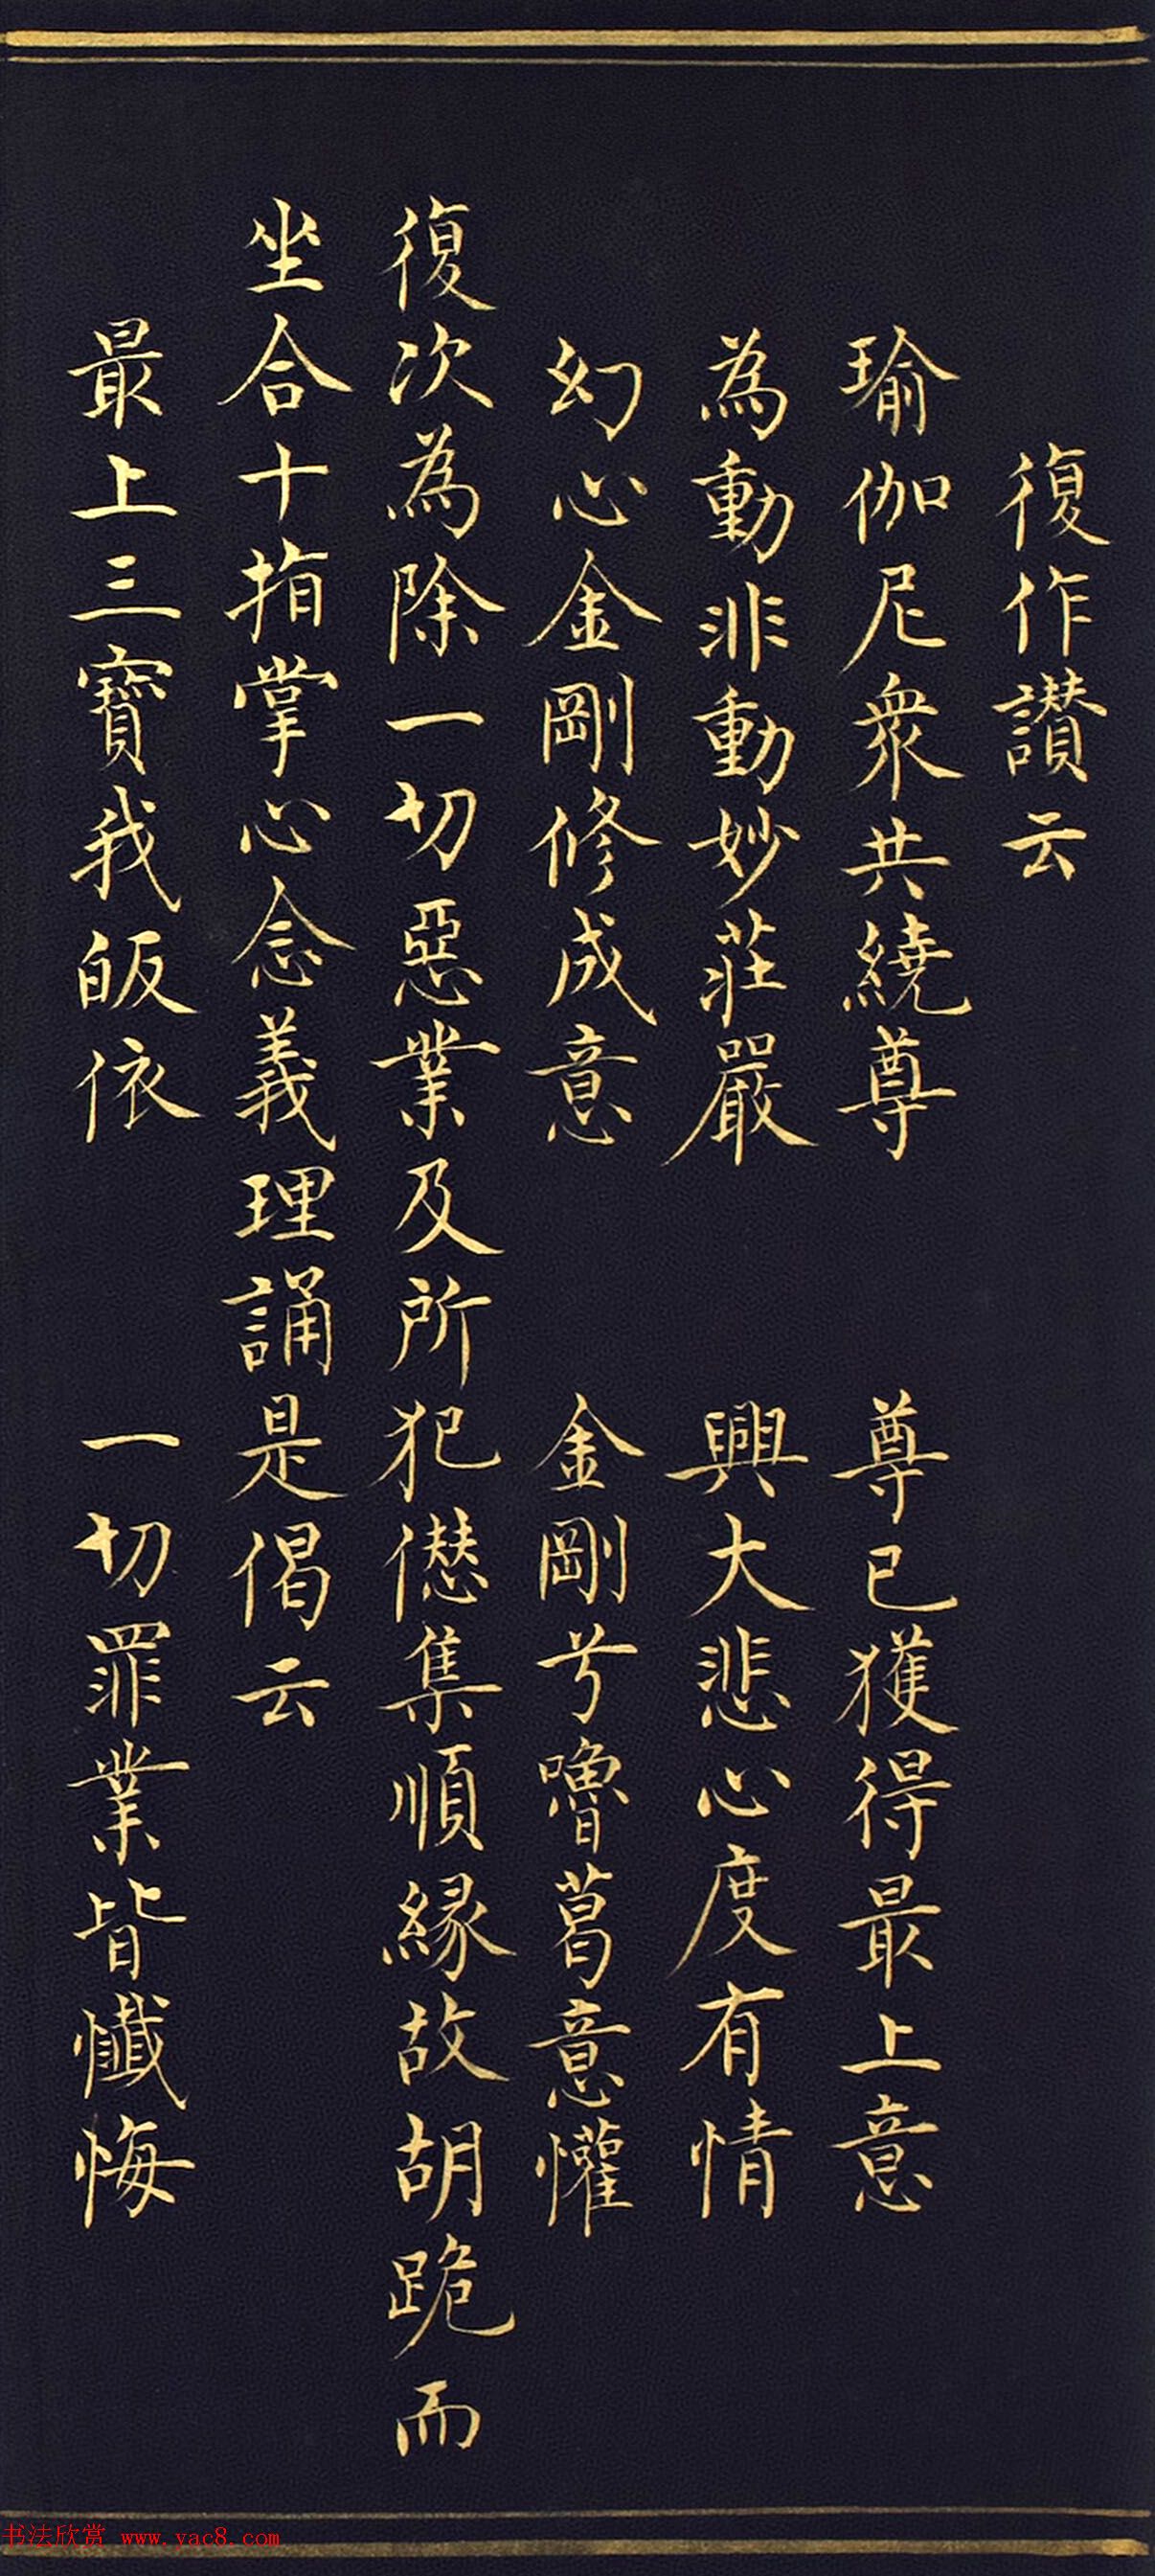 復作讃云
瑜伽尼衆共繞尊　尊已獲得最上意
為動非動妙莊嚴　興大悲心度有情
幻心金剛修成意　金剛兮嚕葛意懽
復次為除一切惡業及所犯僁集順緣故胡跪而
坐合十指掌心念義理誦是偈云
最上三寶我皈依　一切罪業皆懺悔
书法欣赏 www.yac8.com